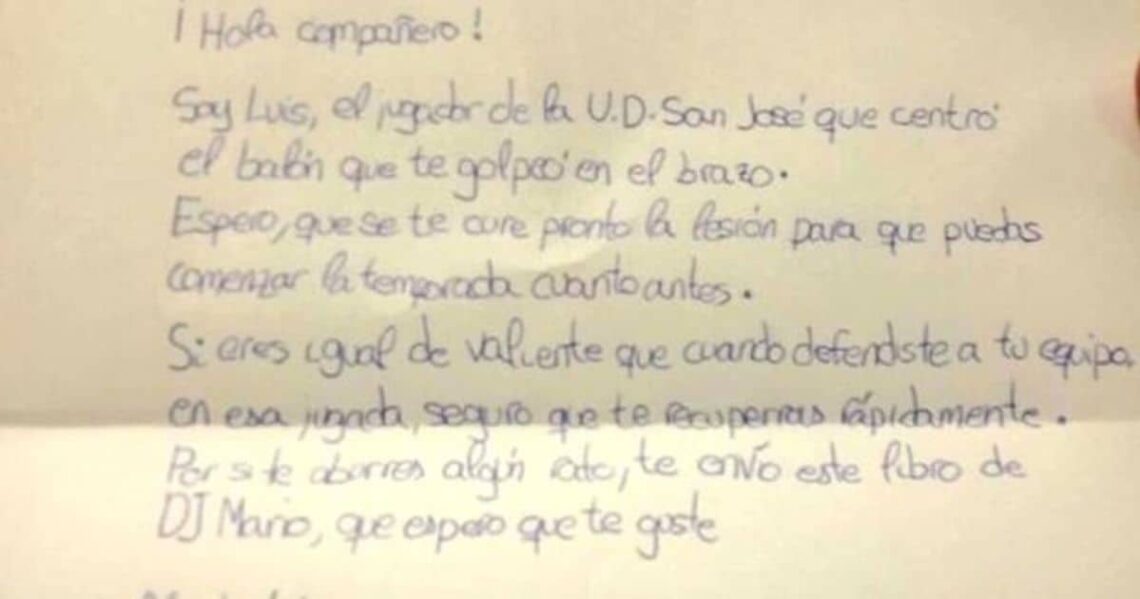 ¡Hola compañero!
Soy Luis, el jugador de la U.D. San José que centró
el balón que te golpeó en el brazo.
Espero, que se te cure pronto la lesión para que puedas
comenzar la temporada cuanto antes.
Si eres igual de valiente que cuando defendiste a tu equipo
en esa jugada, seguro que te recuperras rápidamente.
Por si te aburres algún rato, te envío este libro de
DJ Mario, que espero que te guste